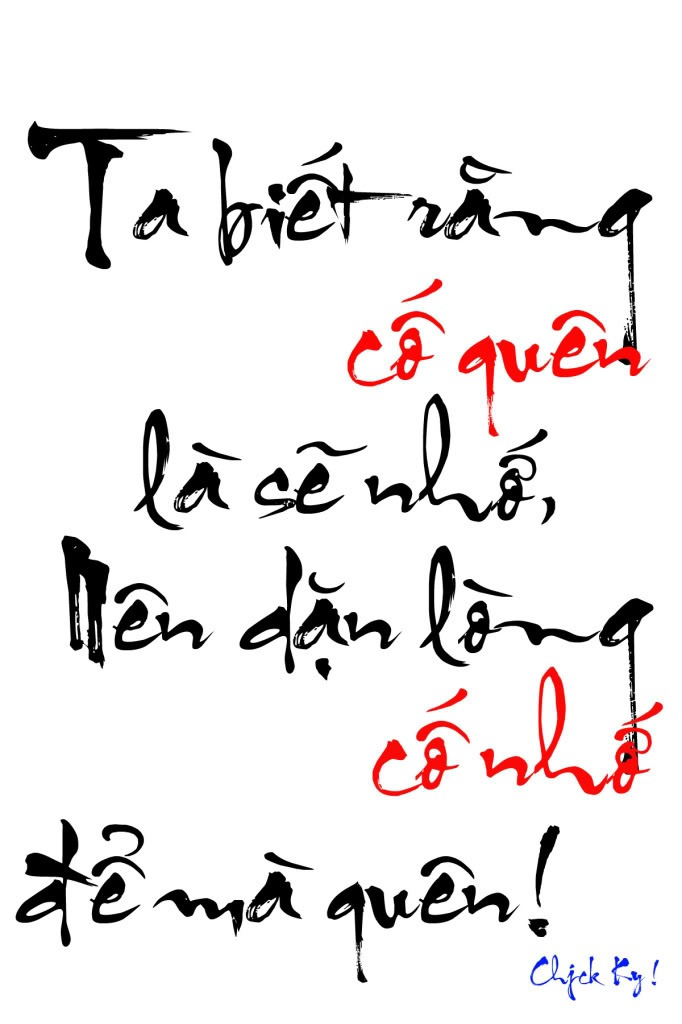 Ta biết rằng
cố quên
là sẽ nhớ,
Nên dặn lòng
cố nhớ
để mà quên!
Chjck Ky!